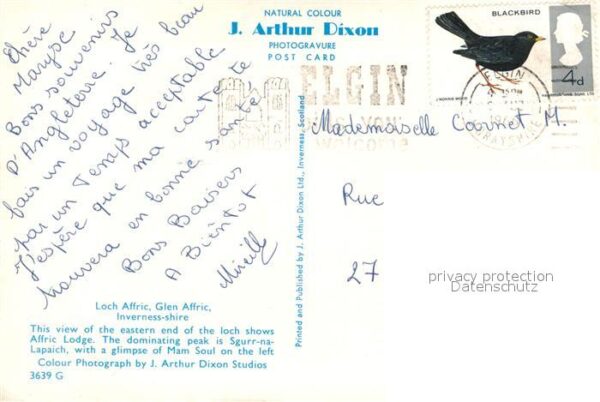 NATURAL COLOUR
J. Arthur Dixon
PHOTOGRAVURE
POST CARD
BLACKBIRD
4d
ELGIN
ELGIN
welcome
Chère
Maryse
Bons souvenirs
D'Angleterre. Je
fais un voyage très beau
par un Temps acceptable
J'espère que ma carte te
trouvera en bonne santé
Bons Baisers
A Bientôt
Mireille
Mademoiselle Cornet M.
Rue
27
privacy protection
Datenschutz
Printed and Published by J. Arthur Dixon Ltd., Inverness, Scotland
Loch Affric, Glen Affric,
Inverness-shire
This view of the eastern end of the loch shows
Affric Lodge. The dominating peak is Sgurr-na-
Lapaich, with a glimpse of Mam Soul on the left
Colour Photograph by J. Arthur Dixon Studios
3639 G